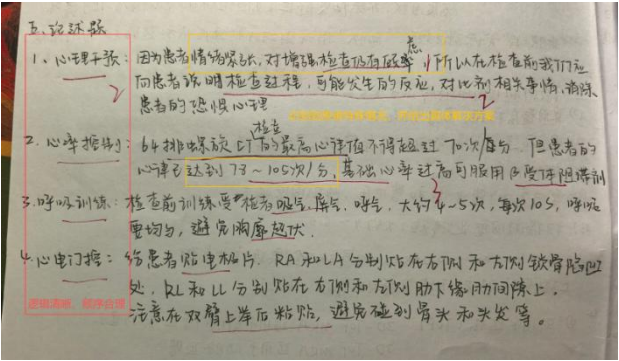 五、论述题
1、心理干预：因为患者情绪紧张，对增强检查仍有顾率虑，所以在检查前我们应
向患者说明检查过程，可能发生的反应，对比剂相关事情，消除
患者的恐惧心理
2
2
2、心率控制：64排螺旋CT检查的最高心律值不得超过70次/每分，但患者的
心律已达到78～105次/分，基础心率过高可服用β受体阻滞剂
3
3、呼吸训练：检查前训练受检者吸气、屏气、呼气，大约4~5次，每次10s，呼吸
要均匀，避免胸廓起伏．
4、心电门控：给患者贴电极片．RA和LA分别贴在右侧和左侧锁骨陷凹
处．RL和LL分别贴在右侧和左侧肋下缘肋间隙上．
逻辑清晰、程序合理
注意在双臂上举后粘贴，避免碰到骨头和头发等。